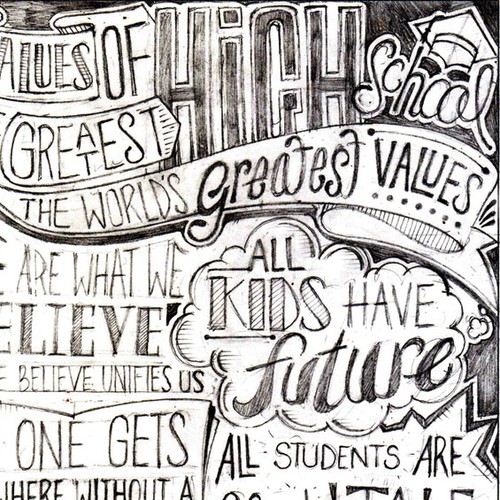 VALUES OF HiGH School
GREATEST
THE WORLD'S greatest VALUES
ARE WHAT WE
ELIEVE
E BELIEVE UNIFIES US
ALL
KIDS HAVE
future
ONE GETS
HERE WITHOUT A
ALL STUDENTS ARE